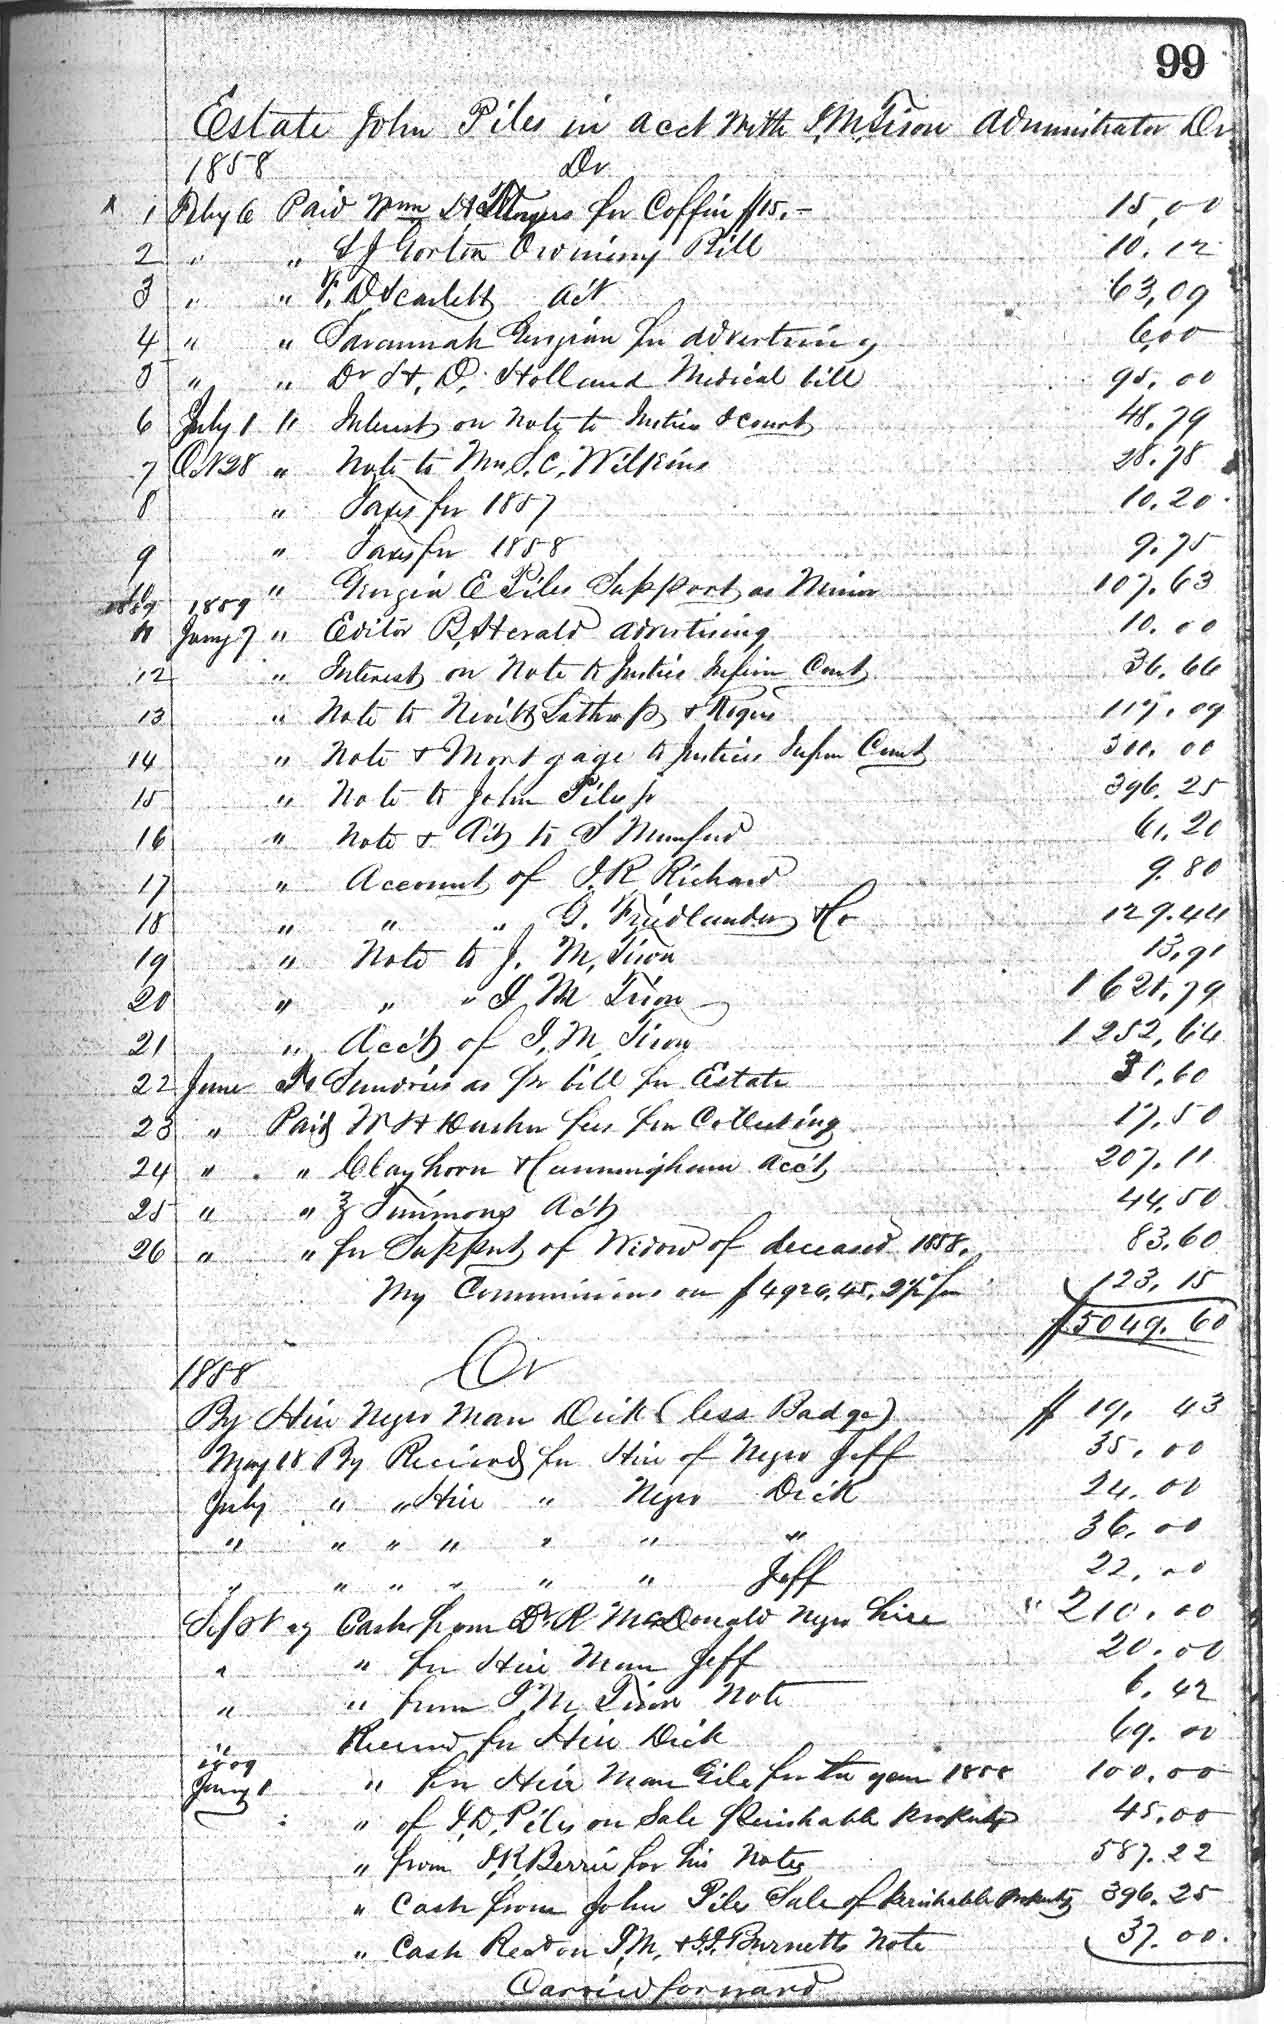 99
Estate John Piles in acct with I, M, Tison Administrator Dr
1858 Dr
1 Feby 6 Paid Wm H for Coffin $15.- 15,00
2 " " S J Gorton Bill 10.12
3 " " F, D Scarlett act 63,09
4 " " Savannah Georgian for advertising 6,00
5 " " Dr H, D, Holland Medical bill 95.00
6 July 1 " Interest on Note to Justice I court 48.79
7 Oct 28 " Note to Mrs, S. C, Wilkins 28.78
8 " Taxes for 1857 10.20
9 " Taxes for 1858 9.75
10 " Georgia E Piles Support as Minor 107.63
1859 1859
11 Jany 7 " Editor B, Herald advertising 10.00
12 " Interest on Note to Justice Inferior Court 36.66
13 " Note to Nevitt Lathrop & Rogers 117.09
14 " Note & Mortgage to Justices Infer Court 300.00
15 " Note to John Piles jr 396.25
16 " Note & Act to S Mumford 61,20
17 " Account of J. R. Richard 9.80
18 " " " G. Friedlander & Co 129.44
19 " Note to J. M, Tison 13,91
20 " " " I M Tison 1621,79
21 " Acct of I, M, Tison 1252,64
22 June To Sundries as pr bill for Estate 31,60
23 " Paid W H Dasher fees for Collecting 17.50
24 " " Clayhorn & Cunningham acct 207.11
25 " " Z Timmons Act 44,50
26 " " for Support of Widow of deceased 1858. 83,60
My Commissions on $4926,45, 2½ pr 123,15
$5049.60
1858 Cr
By Hire Negro Man Dick (less Badge) $19,43
May 18 By Received for Hire of Negro Jeff 35.00
July " " Hire " Negro Dick 24.00
" " " " " " " 36.00
" " " " " " Jeff 22.00
Sept 27 Cash from Dr R McDonald Negro hire " 210.00
" " for Hire Man Jeff 20.00
" " from I, M, Tison Note 6.42
" Received for Hire Dick 69.00
1859
Jany 1 " for Hire Man Gile for the year 1858 100.00
" of I, D, Piles on Sale Perishable Property 45.00
" from J, R Berrie for his Notes 587.22
" Cash from John Piles Sale of Perishable Property 396.25
" Cash Recd on I, M, & J, J, Burnetts Note 37.00.
Carried forward